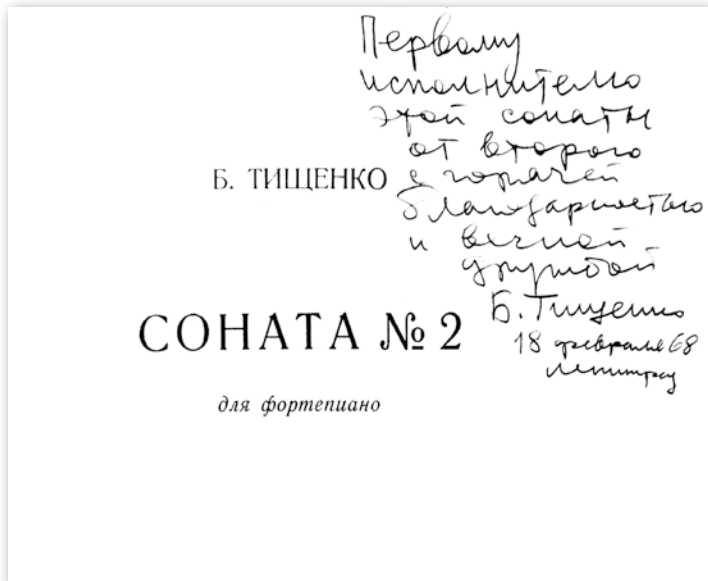 Первому
исполнителю
этой сонаты
от второго
с горячей
благодарностью
и вечной
дружбой
Б. Тищенко
18 февраля 68
Ленинград
Б. ТИЩЕНКО
СОНАТА № 2
для фортепиано